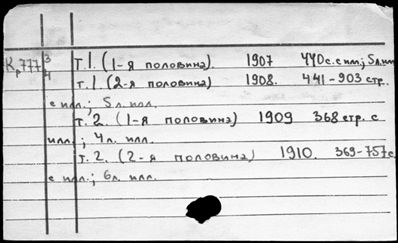 Кр777 3/4 т.1. (1-я половина). 1907 440 с. с илл.; 5 л. илл.
т.1. (2-я половина) 1908. 441-903 стр.
с илл.; 5 л. илл.
т. 2. (1-я половина) 1909 368 стр. с
илл.; 4 л. илл.
т. 2. (2-я половина) 1910. 369-757 с
с илл.; 6 л. илл.